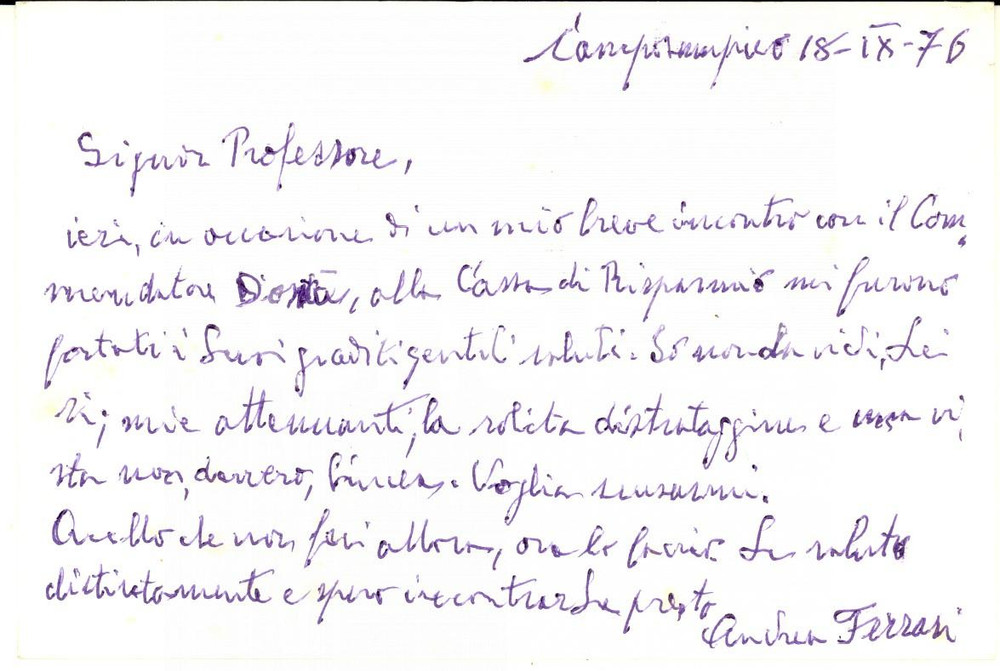 Camposampiero 18-IX-76
Signor Professore,
ieri, in occasione di un mio breve incontro con il Com,
mendatore, alla Cassa di Risparmio mi furono
portati i Suoi graditi gentili saluti. Io non La vidi, Lei
sì; mie attenuanti, la solita distrataggine e una vi,
sta non, davvero, lincea. Voglia scusarmi.
Quello che non feci allora, ora lo faccio. La saluto
distintamente e spero incontrarLa presto
Andrea Ferrari